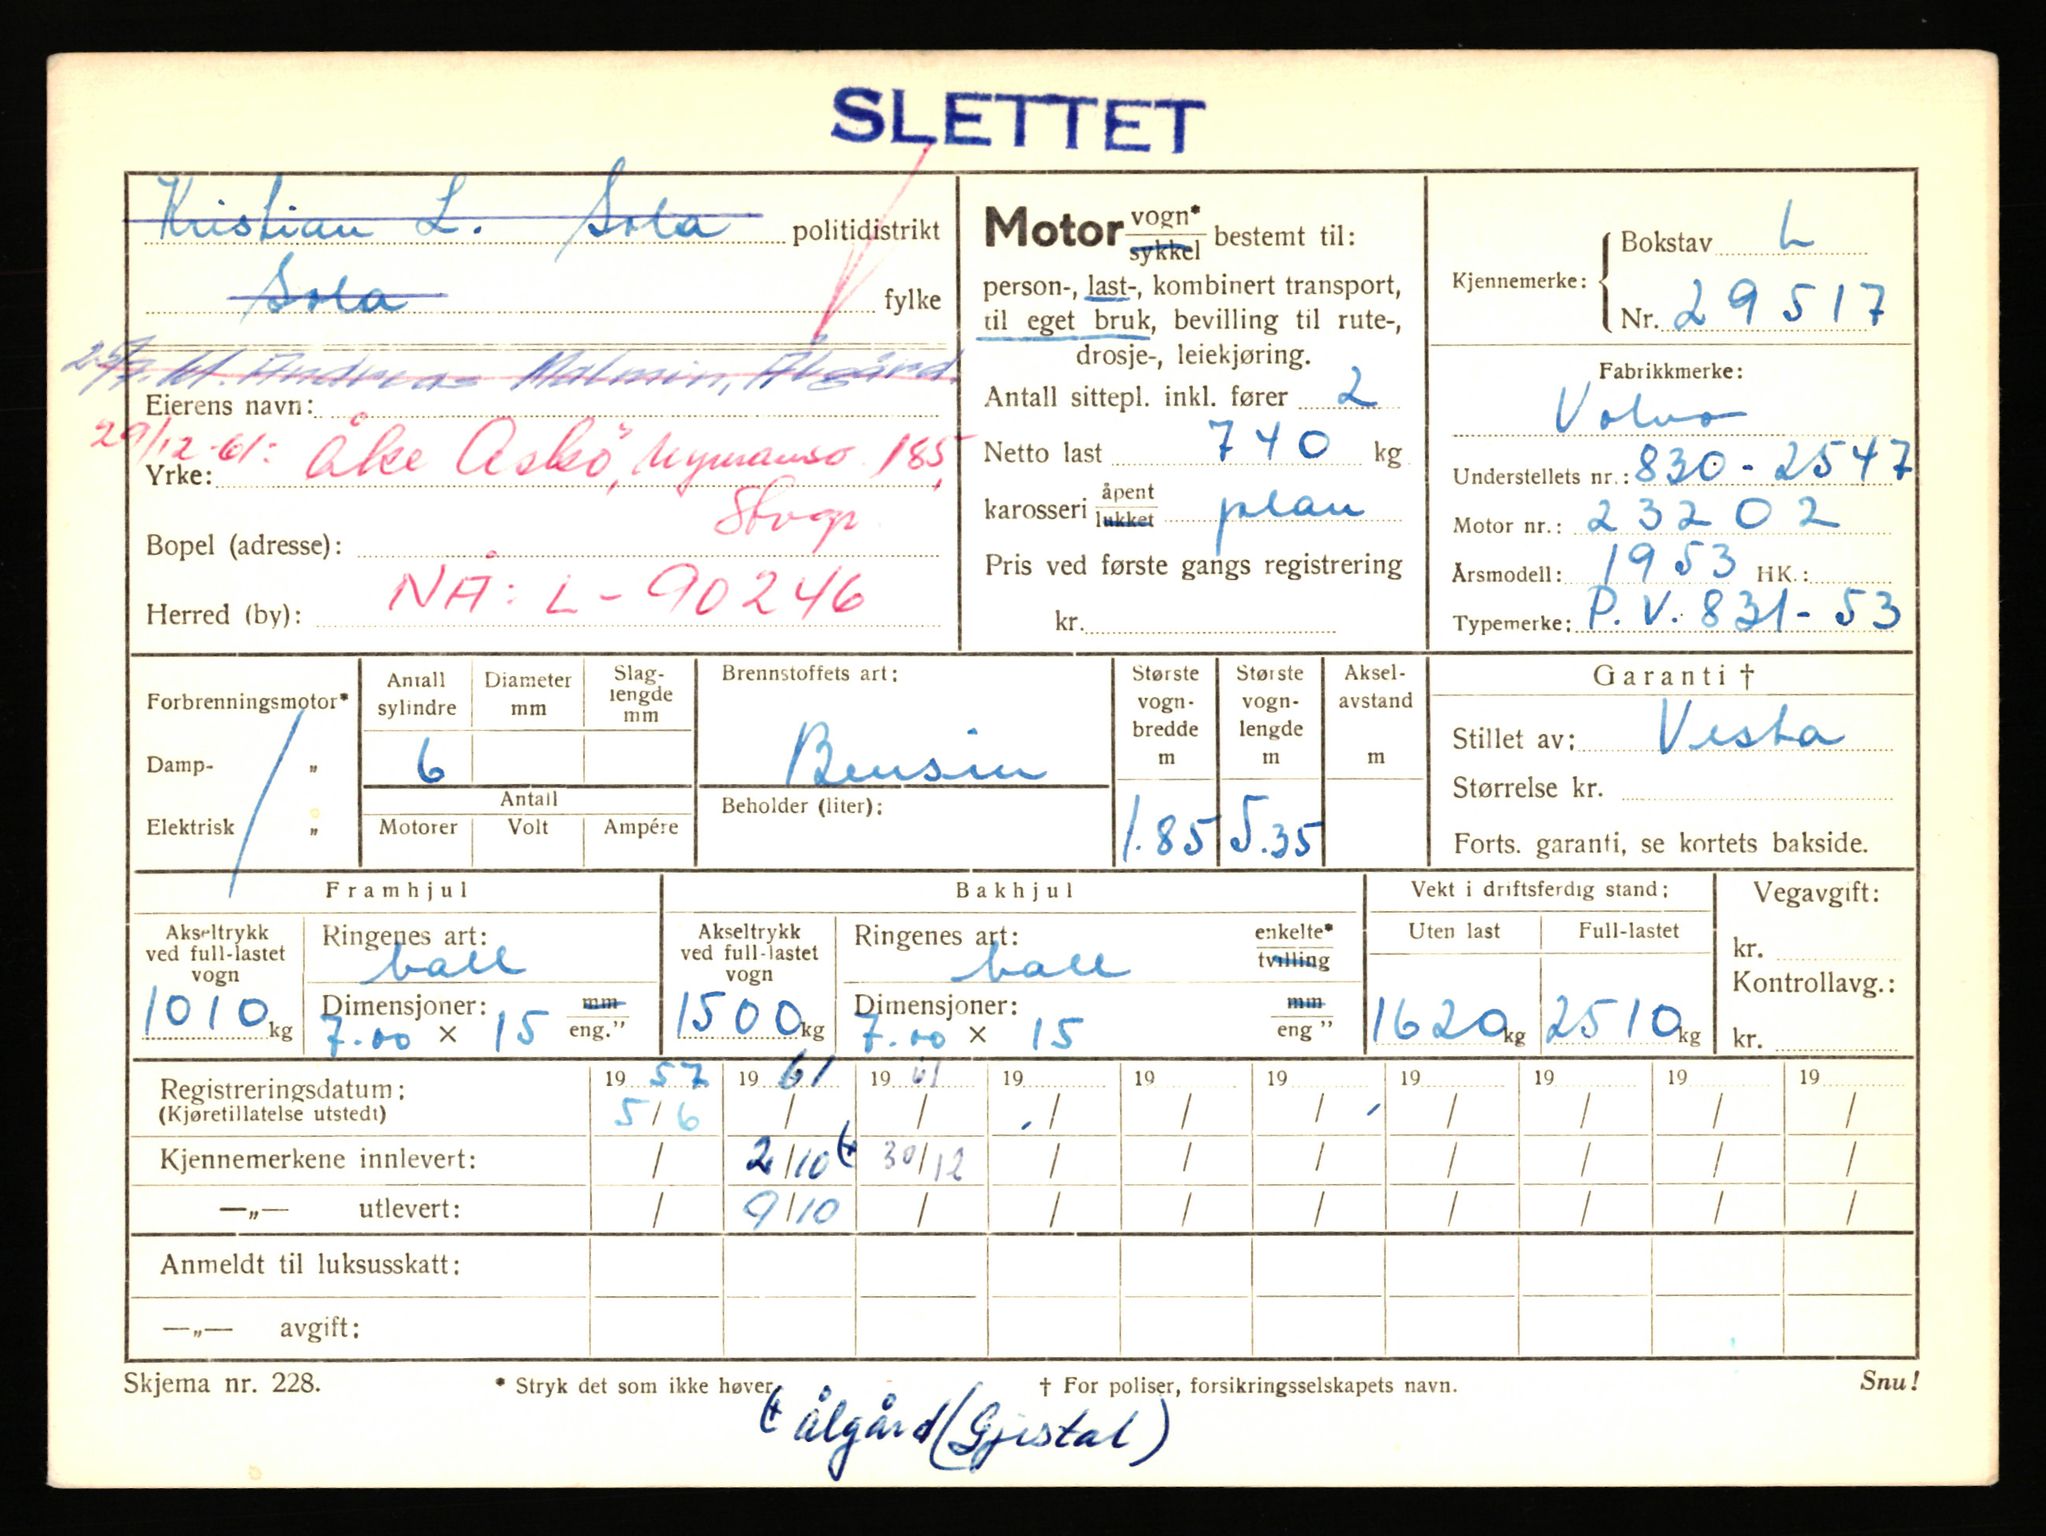 SLETTET
Kristian L. Sola politidistrikt
Sola fylke
Andreas Malmin, Ålgård
Eierens navn:
29/12-61: Åke Askö, 185,
Yrke:
Stvgr.
Bopel (adresse):
NÅ: L-90246
Herred (by):
Motor vogn* sykkel bestemt til:
person-, last-, kombinert transport,
til eget bruk, bevilling til rute-,
drosje-, leiekjøring.
Antall sittepl. inkl. fører 2
Netto last 740 kg
karosseri åpent lukket plan
Pris ved første gangs registrering
kr.
Kjennemerke: Bokstav L
Nr. 29517
Fabrikkmerke:
Volvo
Understellets nr.: 830-2547
Motor nr.: 23202
Årsmodell: 1953 HK.:
Typemerke: P.V. 831-53
Forbrenningsmotor*
Damp- „
Elektrisk „
Antall sylindre
Diameter mm
Slag-lengde mm
6
Antall
Motorer Volt Ampére
Brennstoffets art:
Bensin
Beholder (liter):
Største vogn-bredde m
1.85
Største vogn-lengde m
5.35
Aksel-avstand m
Garanti †
Stillet av: Vesta
Størrelse kr.
Forts. garanti, se kortets bakside.
Framhjul
Akseltrykk ved full-lastet vogn
1010 kg
Ringenes art:
ball
Dimensjoner: mm
7.00 × 15 eng.”
Bakhjul
Akseltrykk ved full-lastet vogn
1500 kg
Ringenes art: enkelte* tvilling
ball
Dimensjoner: mm
7.00 × 15 eng ”
Vekt i driftsferdig stand:
Uten last Full-lastet
1620 kg 2510 kg
Vegavgift:
kr.
Kontrollavg.:
kr.
Registreringsdatum: 19 57 19 61 19 61 19 19 19 19 19 19 19
(Kjøretillatelse utstedt) 5/6 / / / / / / / / /
Kjennemerkene innlevert: / 2/10 (+ 30/12 / / / / / / /
—„— utlevert: / 9/10 / / / / / / / /
Anmeldt til luksusskatt:
—„— avgift:
Skjema nr. 228. * Stryk det som ikke høver. † For poliser, forsikringsselskapets navn. Snu!
(+ Ålgård (Gjestal)